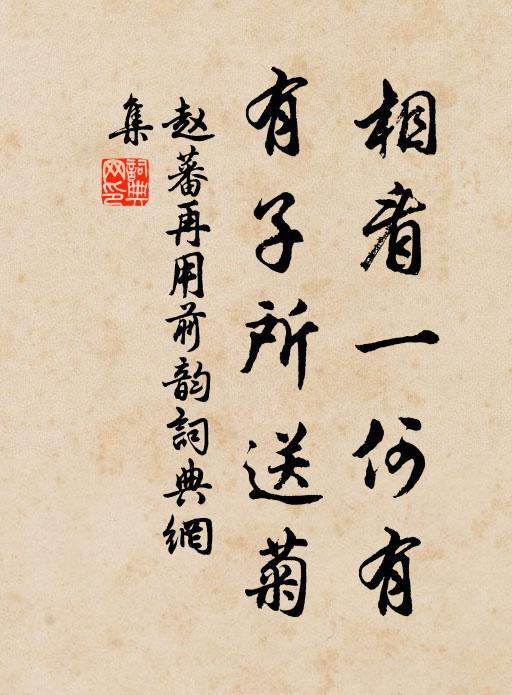 相看一何有
有子所送菊
赵蕃再用前韵词典網
集
詞典网印